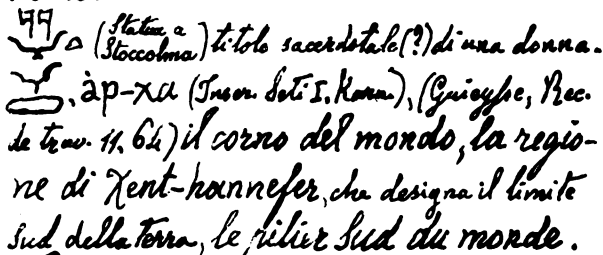 (Statua a Stoccolma) titolo sacerdotale (?) di una donna.
àp-χa (Inscr. Seti I, Karn.), (Guieysse, Rec.
de trav. 11, 64) il corno del mondo, la regio-
ne di χent-hannefer, che designa il limite
sud della terra, le pilier sud du monde.